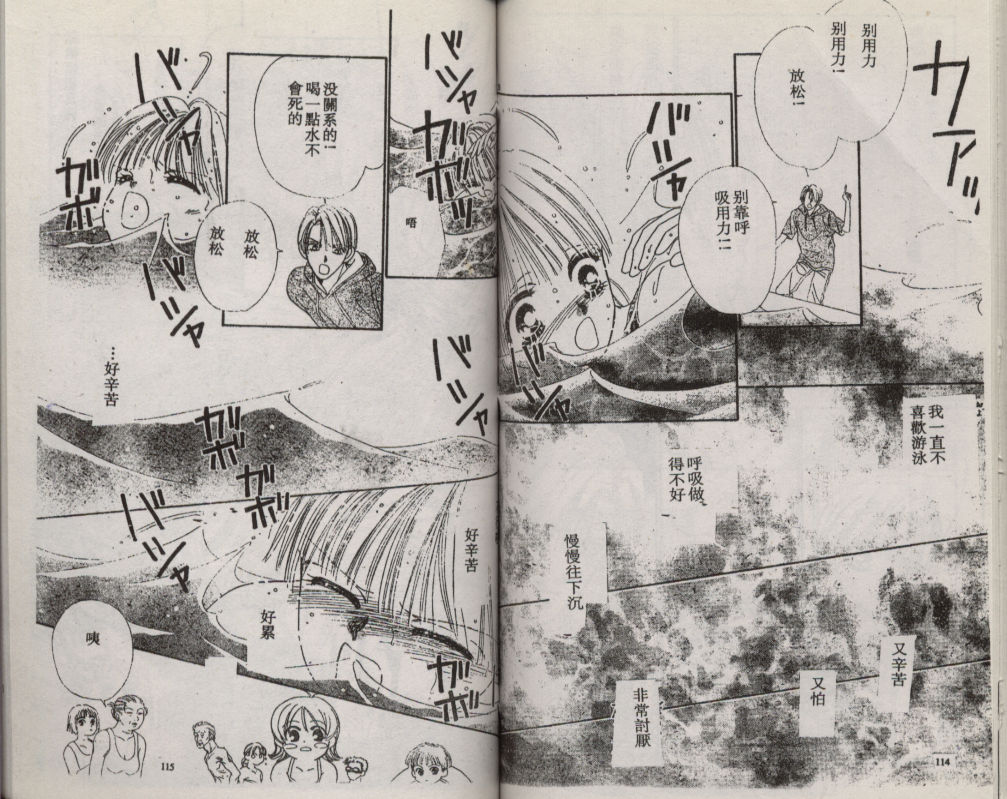 カァッ
別用力
別用力!!
放松!!
バシャ
別靠呼
吸用力!!
バシャ
我一直不
喜歡游泳
呼吸做
得不好
慢慢往下沉
又辛苦
又怕
非常討厭
114
バシャ
ガボッ
唔
没關系的!
喝一點水不
會死的
放松
放松
バシャ
ガボ
バシャ
…好辛苦
バシャ
ガボ
ガボ
バシャ
好辛苦
好累
ガボ
咦
115